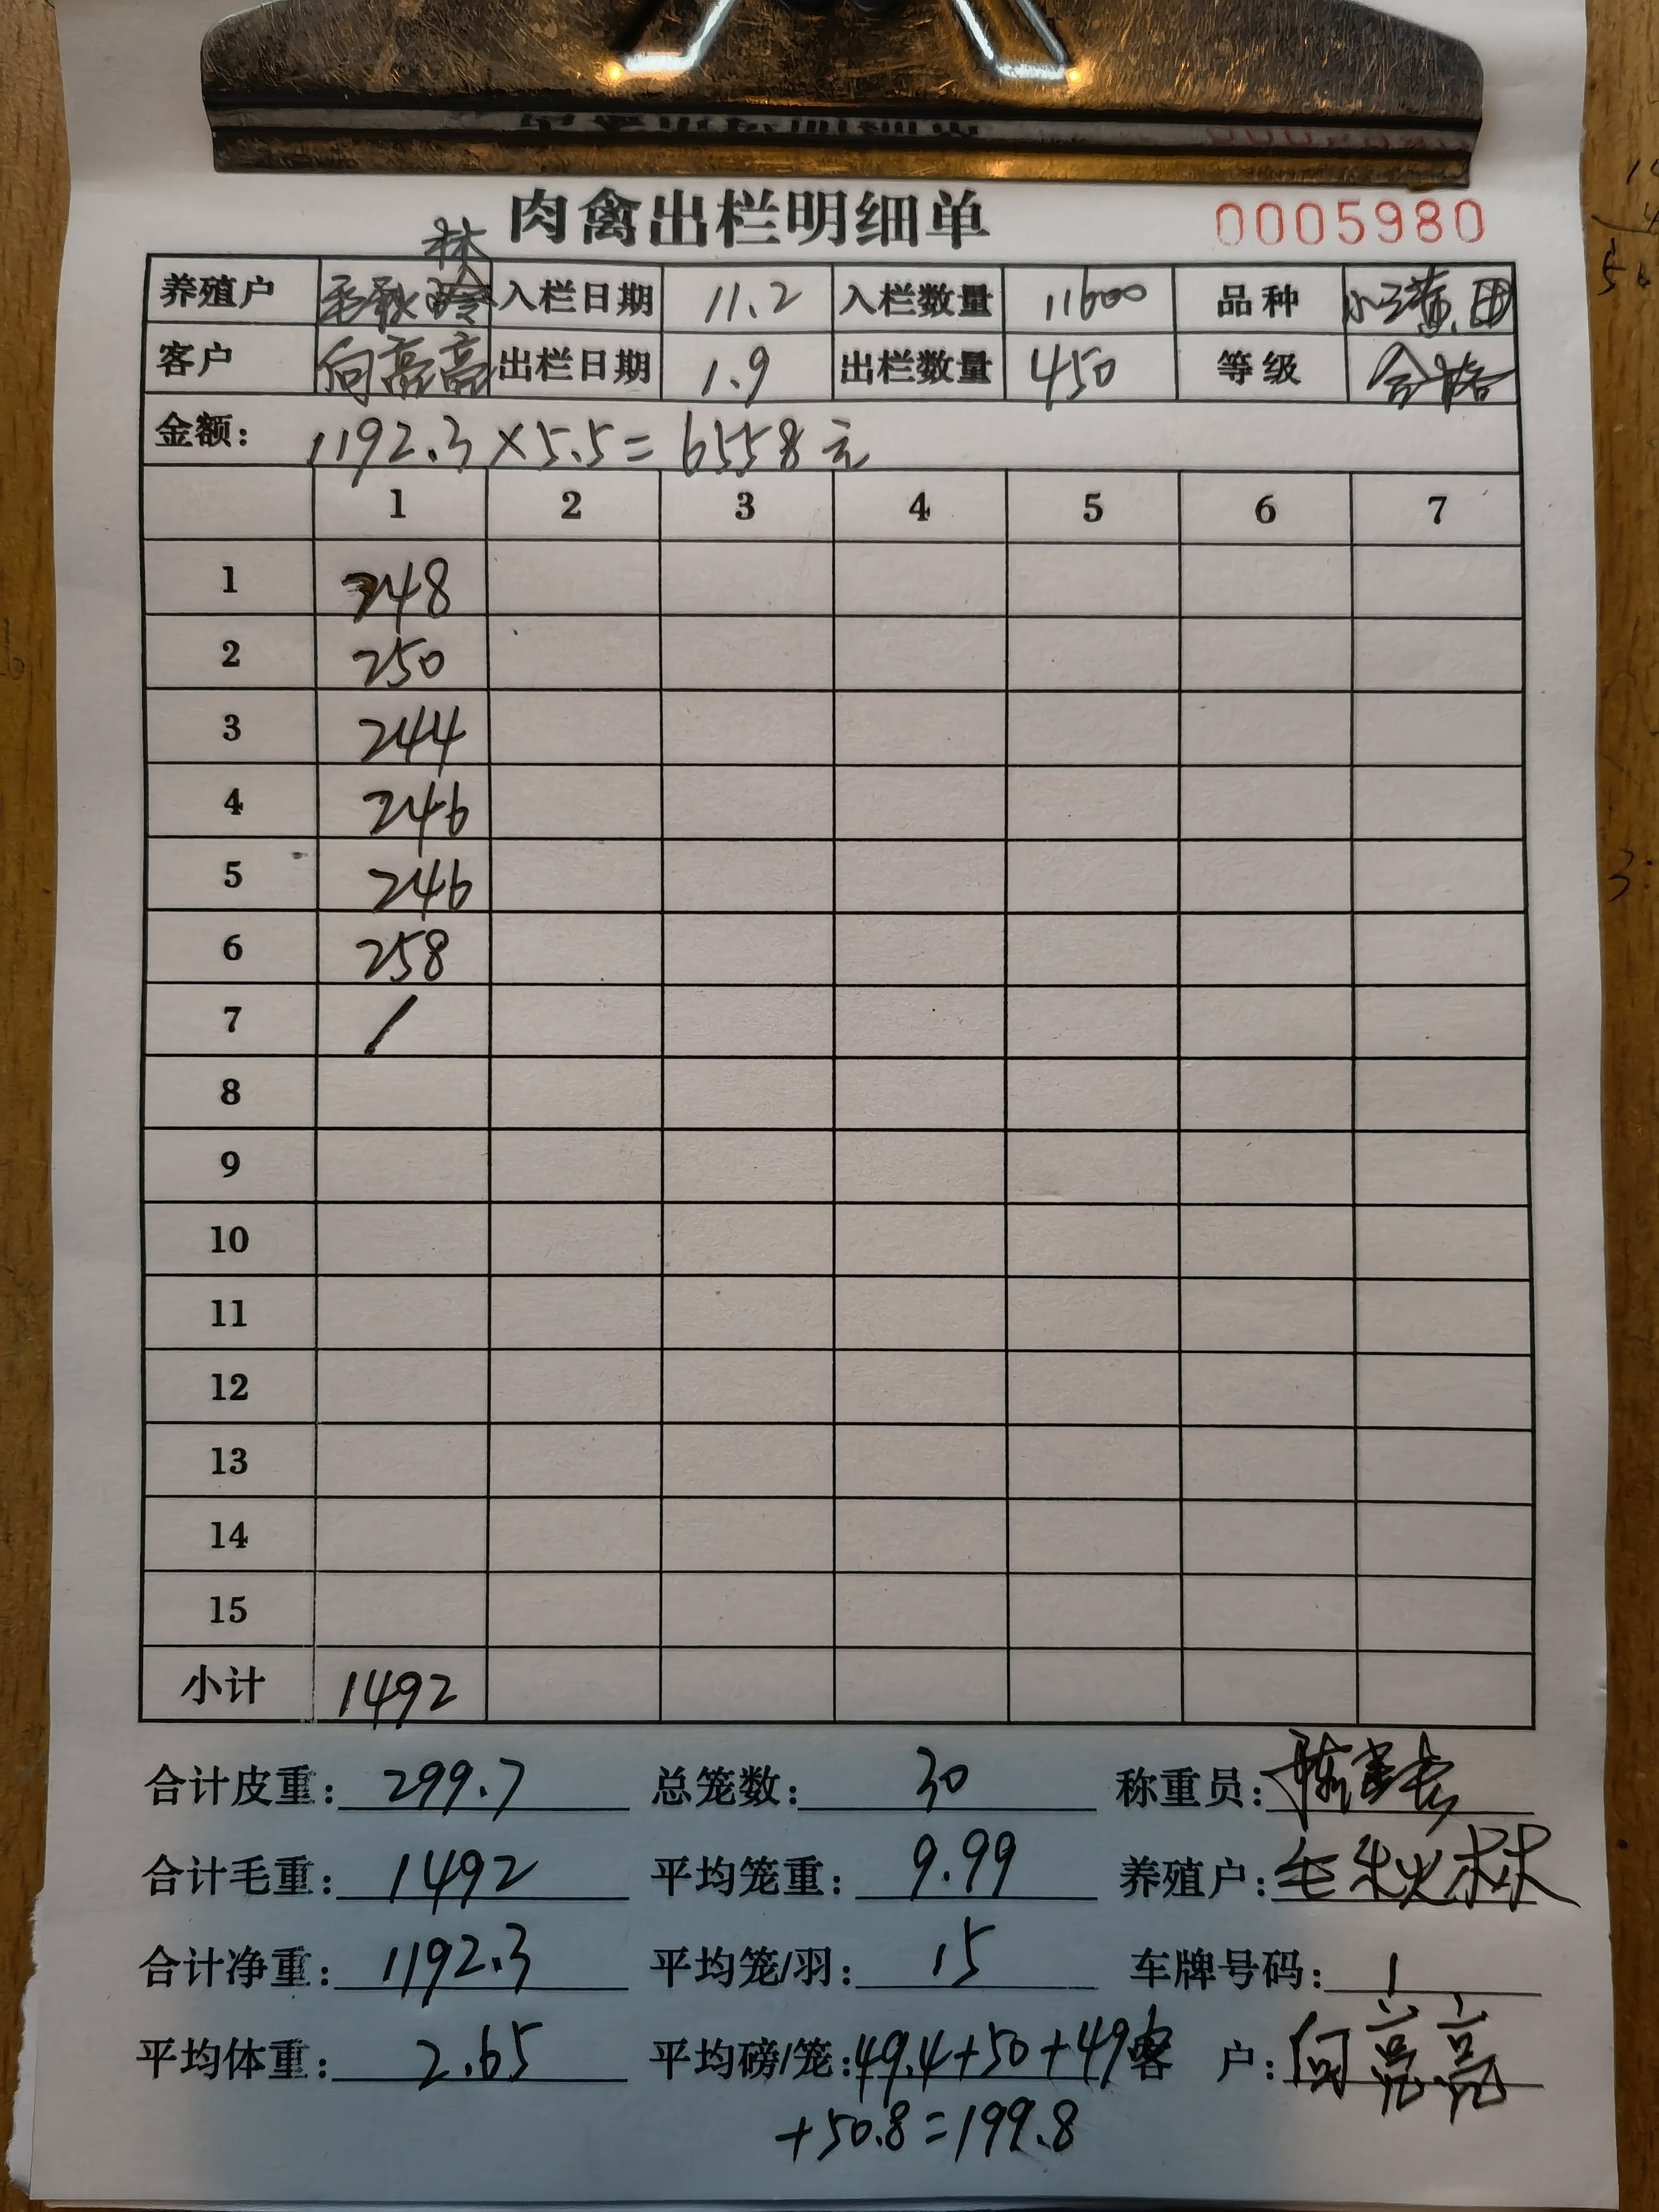 肉禽出栏明细单 0005980
林
养殖户 毛秋 入栏日期 11.2 入栏数量 11600 品种
客户 向亮亮 出栏日期 1.9 出栏数量 450 等级 合格
金额: 1192.3×5.5=6558元
1 2 3 4 5 6 7
1 248
2 250
3 244
4 246
5 246
6 258
7 /
8
9
10
11
12
13
14
15
小计 1492
合计皮重: 299.7 总笼数: 30 称重员:
合计毛重: 1492 平均笼重: 9.99 养殖户: 毛秋林
合计净重: 1192.3 平均笼/羽: 15 车牌号码: 1
平均体重: 2.65 平均磅/笼: 49.4+50+49 客 户: 向亮亮
+50.8=199.8